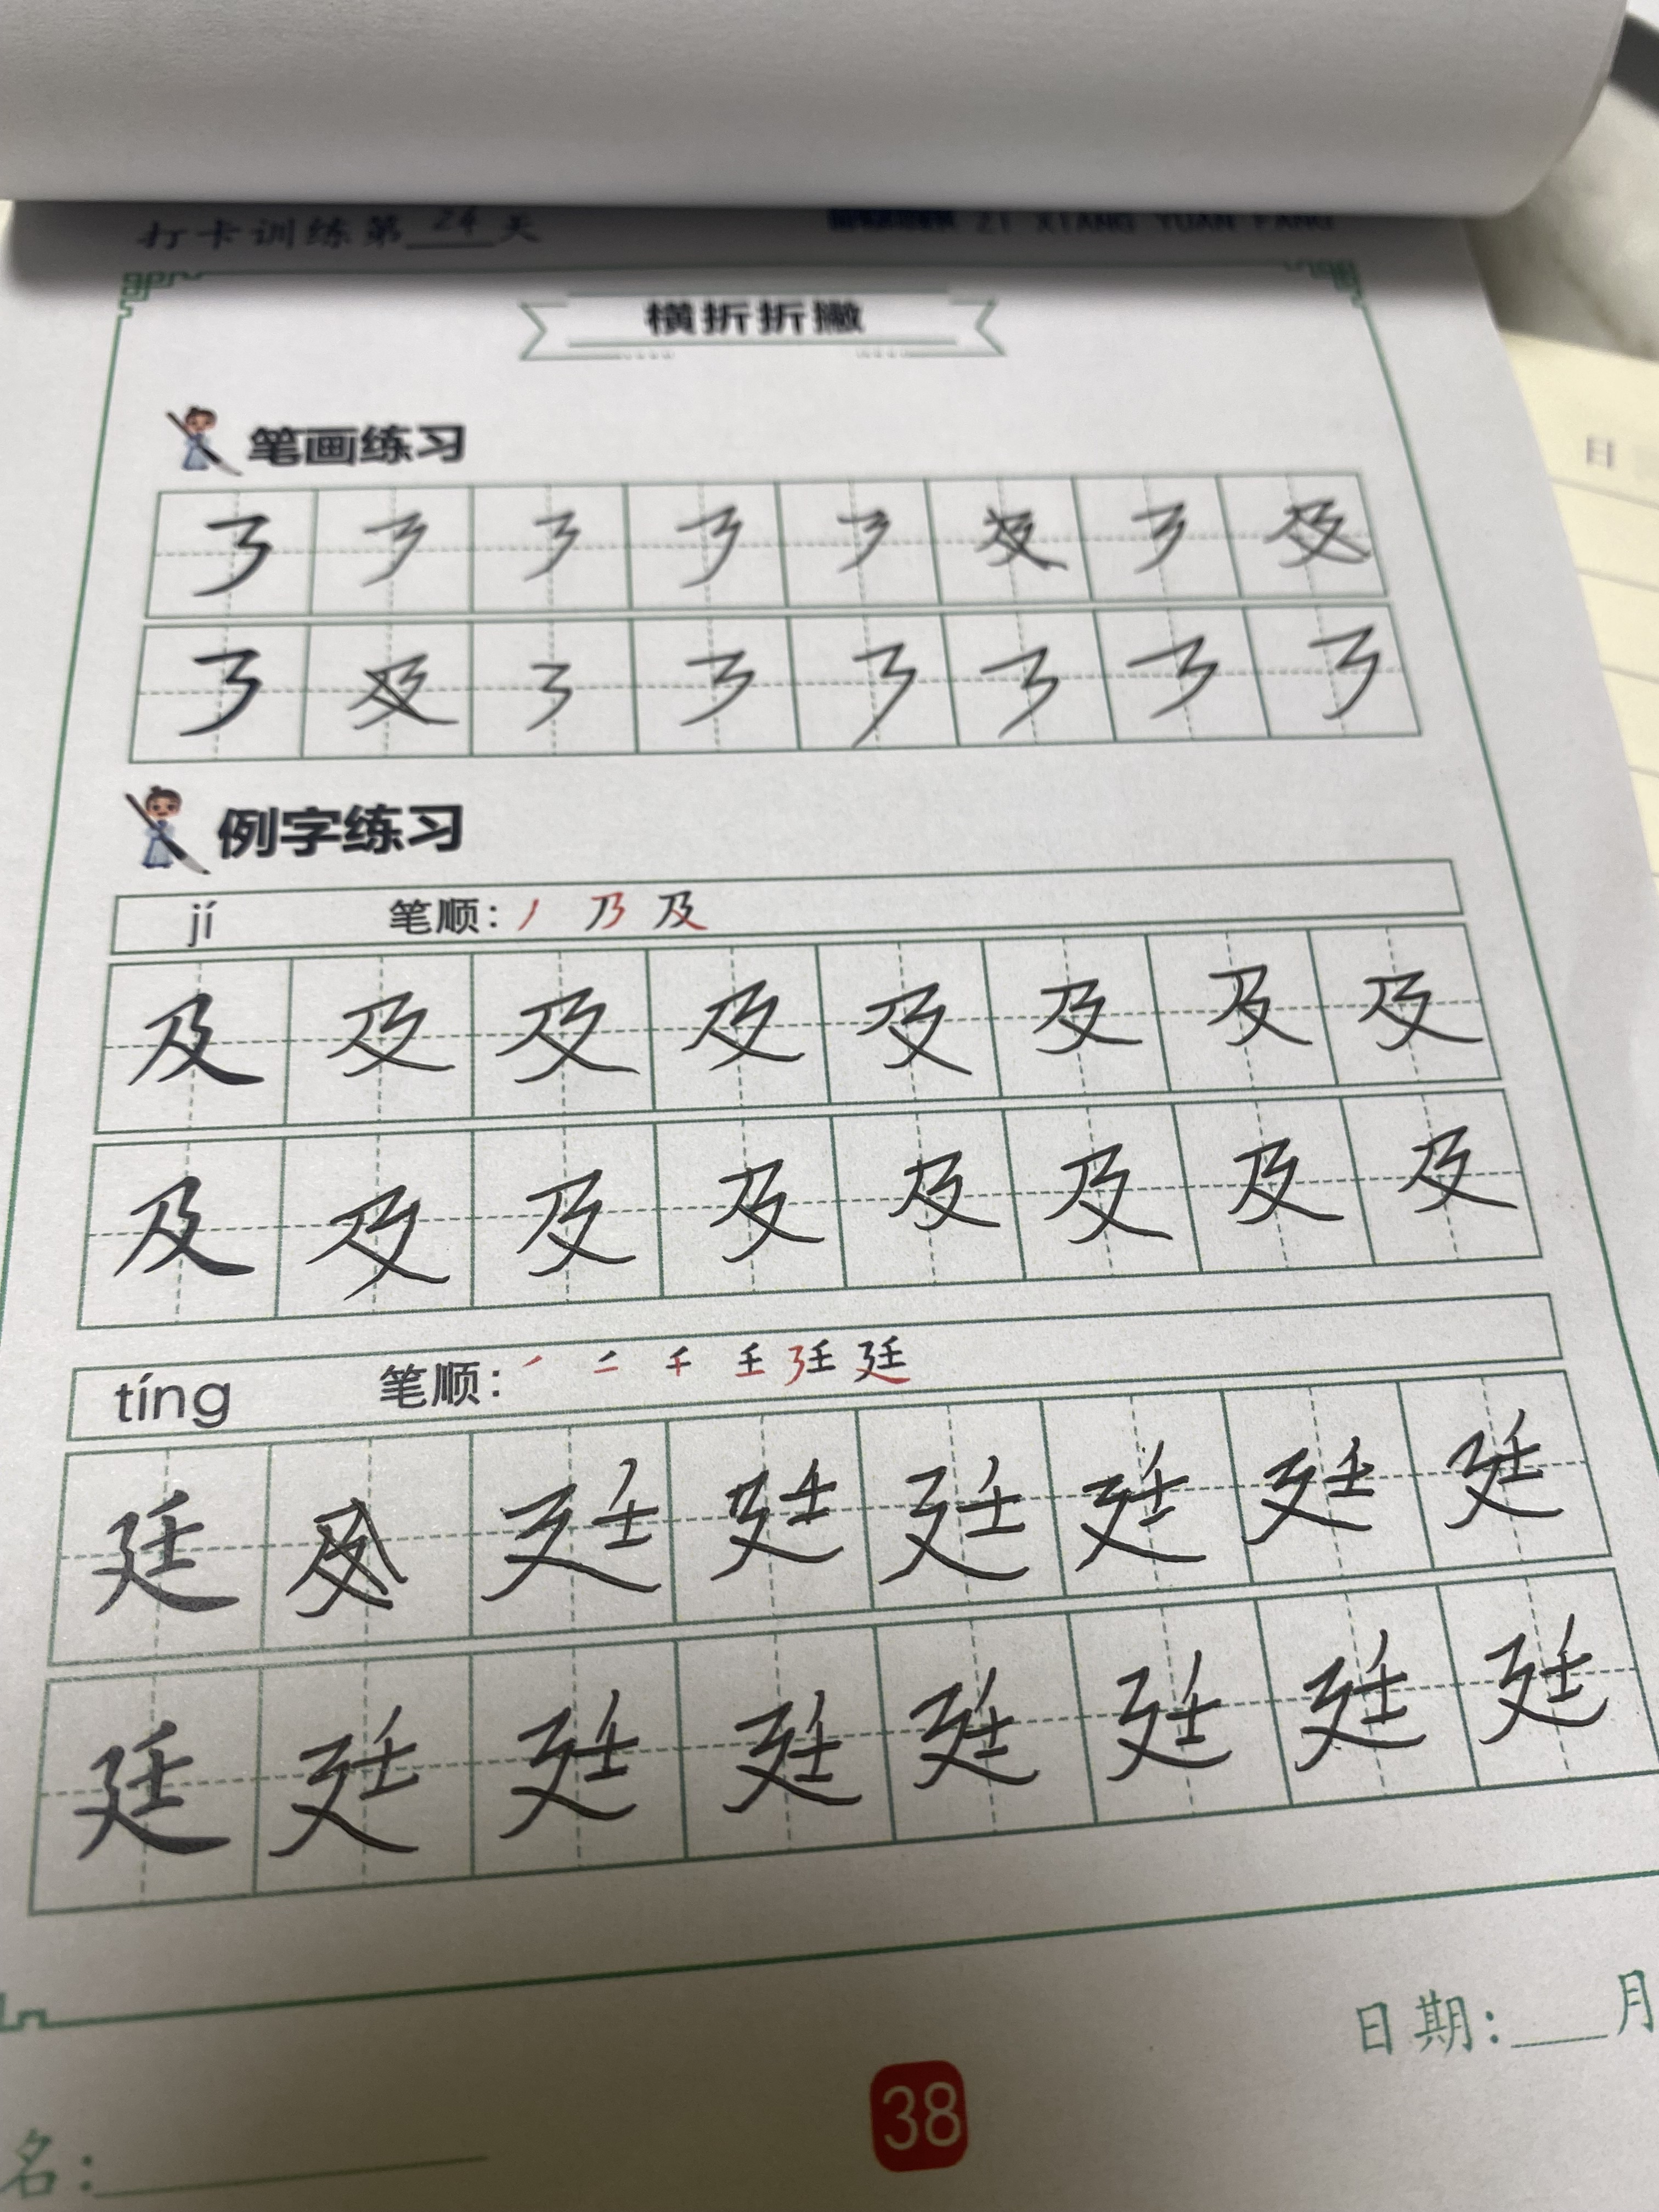 打卡训练第24天 ZI XIANG YUAN FANG
横折折撇
笔画练习
㇋ ㇋ ㇋ ㇋ ㇋ 及 ㇋ 及
㇋ 及 ㇋ ㇋ ㇋ ㇋ ㇋ ㇋
例字练习
jí 笔顺: 丿 乃 及
及 及 及 及 及 及 及 及
及 及 及 及 及 及 及 及
tíng 笔顺: ㇒ 二 千 壬 廷 廷
廷 及 廷 廷 廷 廷 廷 廷
廷 廷 廷 廷 廷 廷 廷 廷
日期:___月
38
名:
日